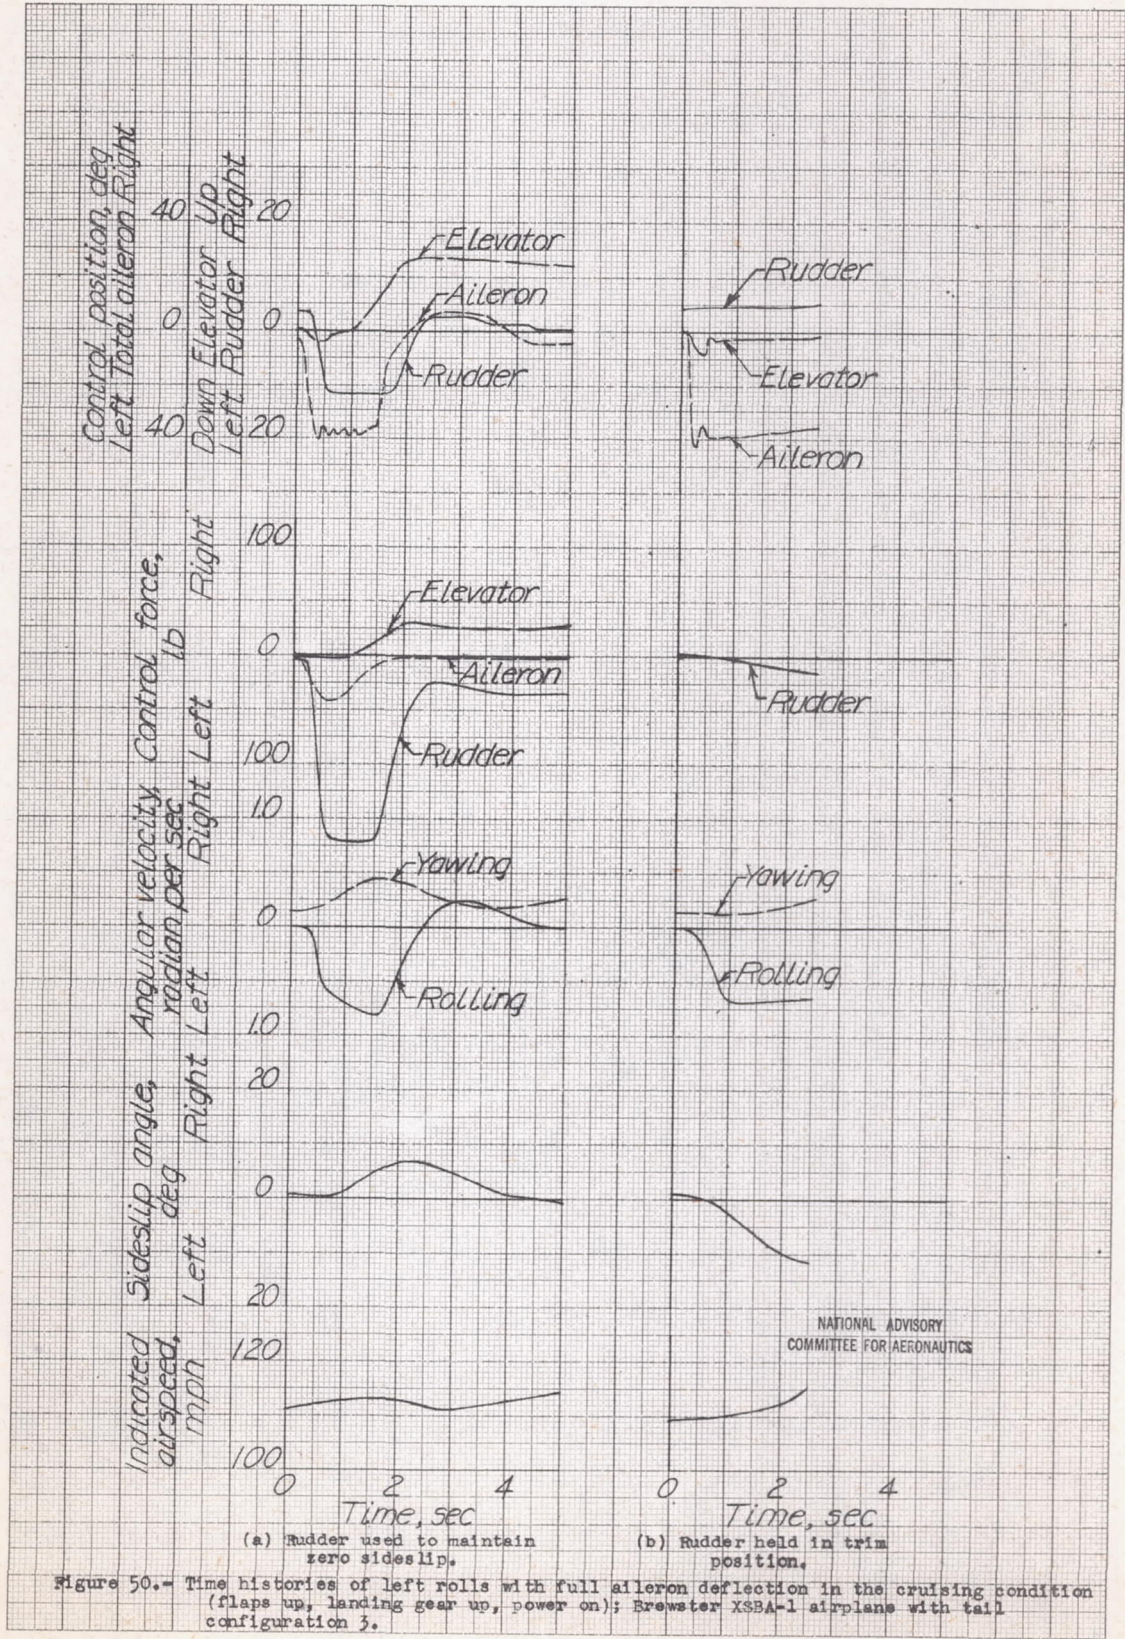 Control position, deg
Left Total aileron Right
40
0
40
Down Elevator Up
Left Rudder Right
20
0
20
Elevator
Aileron
Rudder
Rudder
Elevator
Aileron
Control force,
lb
Left Right
100
0
100
Elevator
Aileron
Rudder
Rudder
Angular velocity,
radian per sec
Left Right
1.0
0
1.0
Yawing
Rolling
Yawing
Rolling
Sideslip angle,
deg
Left Right
20
0
20
Indicated
airspeed,
mph
120
100
NATIONAL ADVISORY
COMMITTEE FOR AERONAUTICS
0 2 4
Time, sec
0 2 4
Time, sec
(a) Rudder used to maintain
zero sideslip.
(b) Rudder held in trim
position.
Figure 50.- Time histories of left rolls with full aileron deflection in the cruising condition
(flaps up, landing gear up, power on); Brewster XSBA-1 airplane with tail
configuration 3.